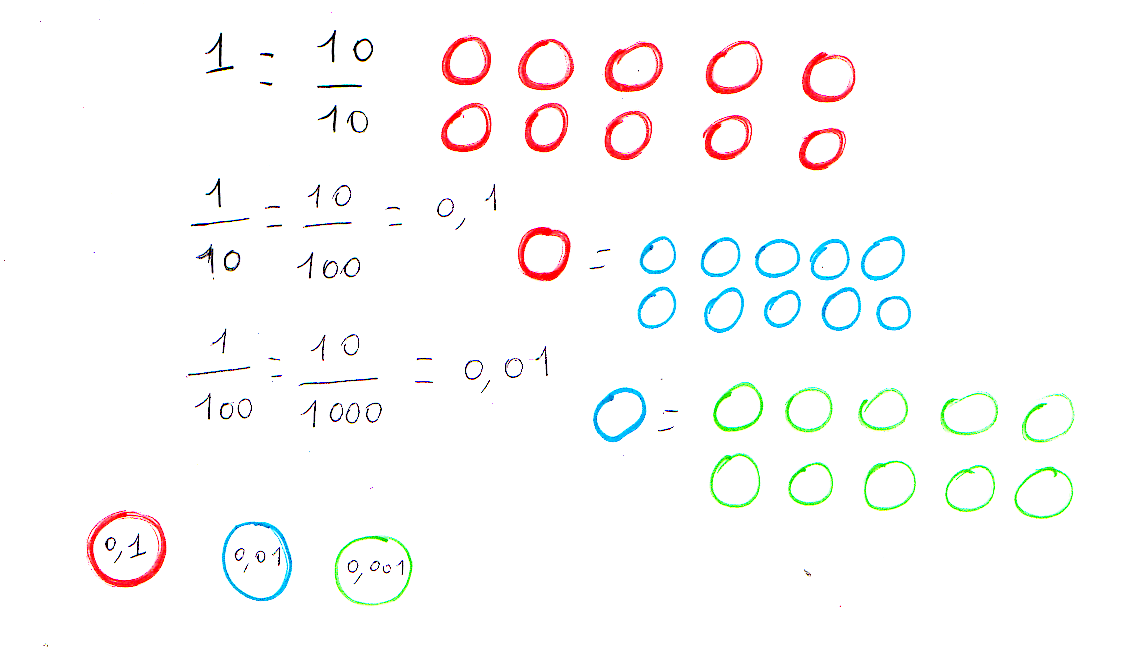 1 = 10/10
1/10 = 10/100 = 0,1
=
1/100 = 10/1000 = 0,01
=
0,1 0,01 0,001